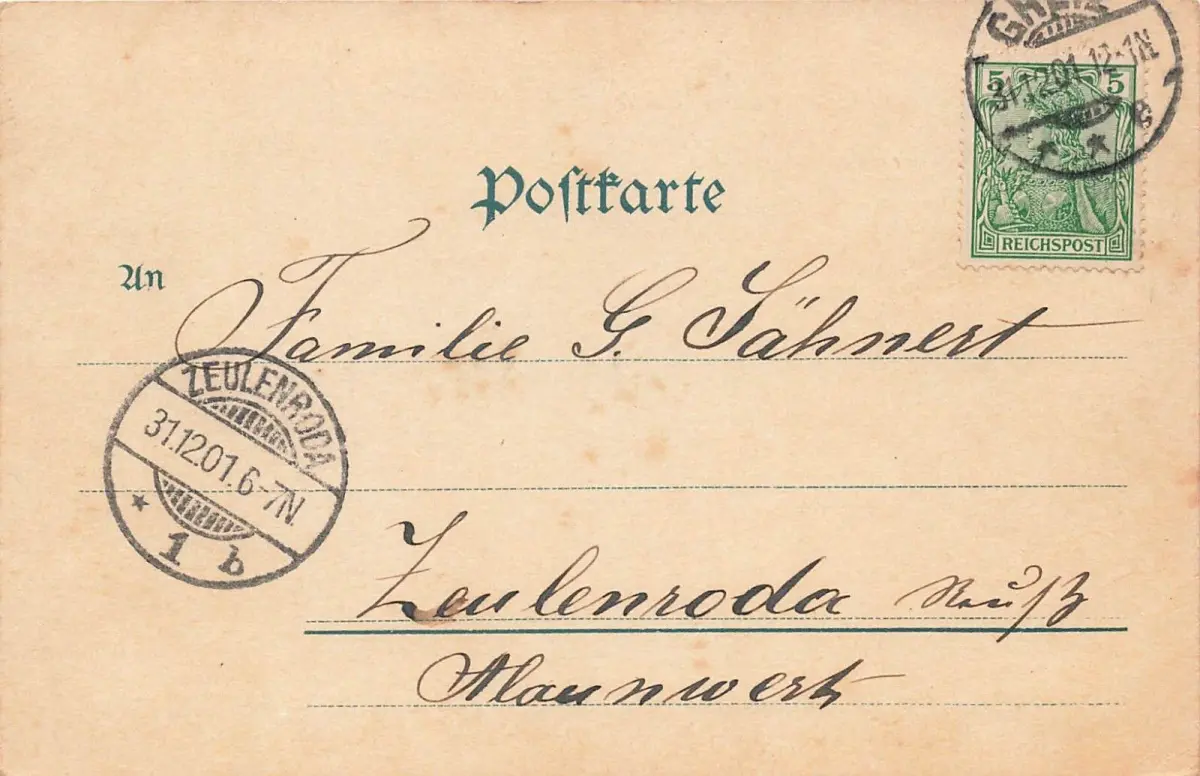 GREIZ
31.12.01.12-1N
c
5 5
REICHSPOST
Postkarte
An
Familie G. Jähnert
ZEULENRODA
31.12.01.6-7N.
* 1 b
Zeulenroda Reuß
Alaunwerk